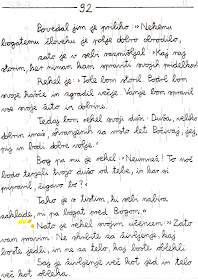 92
Povedal jim je priliko: »Nekemu
bogatemu človeku je polje dobro obrodilo,
zato je v sebi razmišljal: »Kaj naj
storim, ker nimam kam spraviti svojih pridelkov?
Rekel je: »Tole bom storil. Podrl bom
svoje kašče in zgradil večje. Vanje bom spravil
vse svoje žito in dobrine.
Tedaj bom rekel svoji duši: Duša, veliko
dobrin imaš, shranjenih za vrsto let. Počivaj, jej,
pij in bodi dobre volje!
Bog pa mu je rekel: »Neumnež! To noč
bodo terjali tvojo dušo od tebe, in kar si
pripravil, čigavo bo?«
Tako je s tistim, ki sebi nabira
zaklade, ni pa bogat pred Bogom.«
Nato je rekel svojim učencem: »Zato
vam pravim: Ne skrbite za življenje, kaj
boste jedli, in ne za telo, kaj boste oblekli.
Saj je življenje več kot jed in telo
več kot obleka.